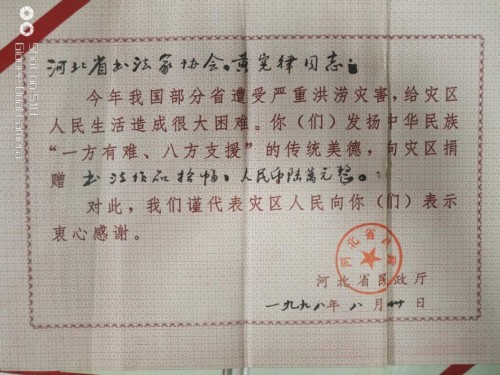 河北省书法家协会。黄宪律同志:
今年我国部分省遭受严重洪涝灾害,给灾区
人民生活造成很大困难。你(们)发扬中华民族
“一方有难、八方支援”的传统美德,向灾区捐
赠 书法作品拾幅,人民币陆万元整。
对此,我们谨代表灾区人民向你(们)表示
衷心感谢。
河北省民政厅
一九九八年 八 月 卅 日